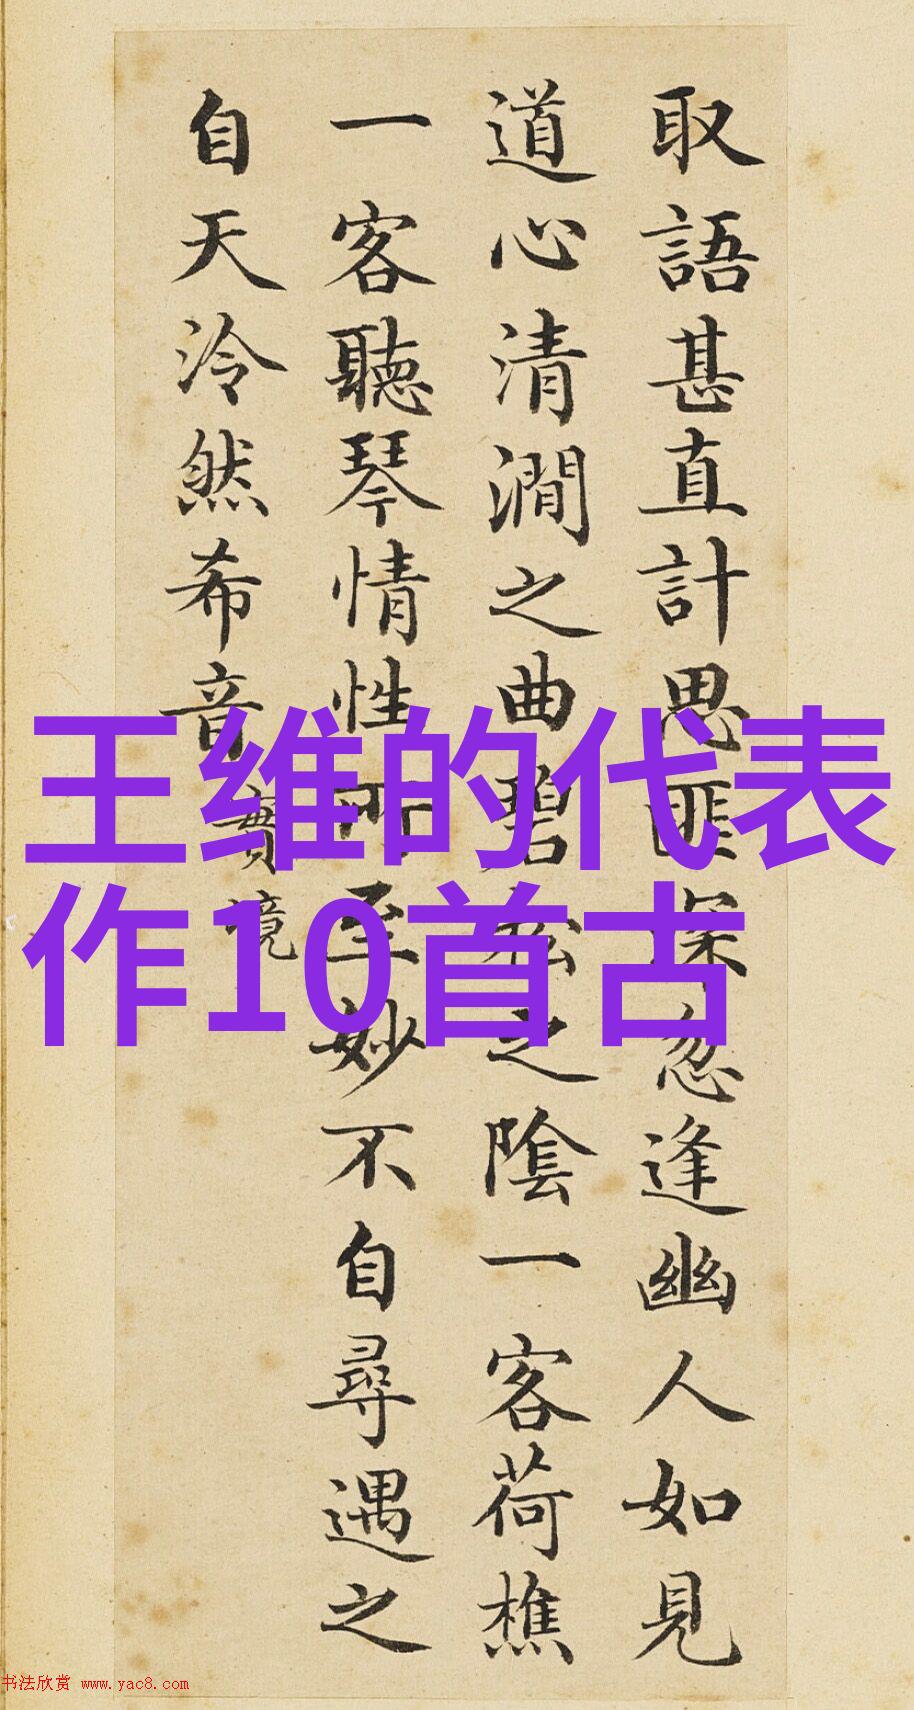 取語甚直計思匪深忽逢幽人如見
道心清澗之曲碧松之陰一客荷樵
一客聽琴情性所至妙不自尋遇之
自天泠然希音 實境
王维的代表
作10首古
书法欣赏 www.yac8.com